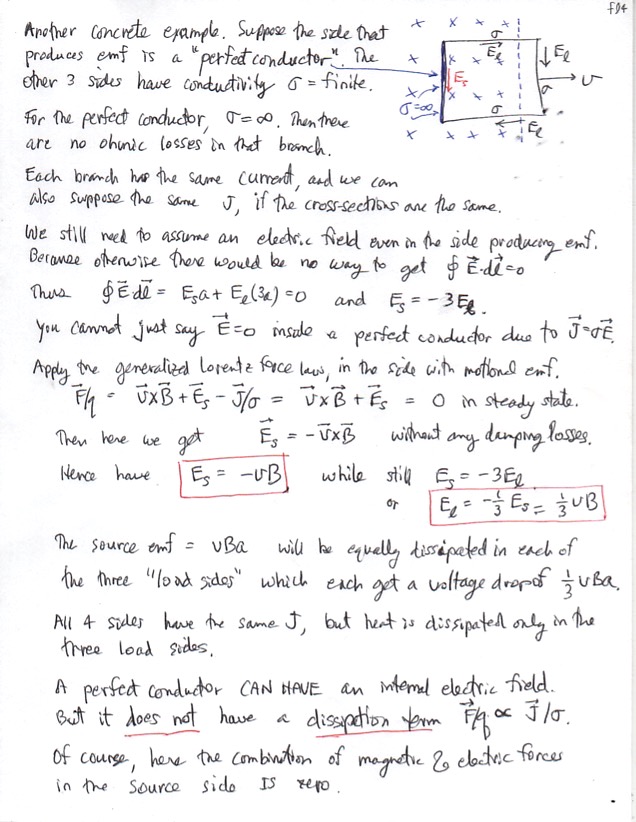 f24
Another concrete example. Suppose the side that
produces emf is a "perfect conductor". The
other 3 sides have conductivity σ = finite.
For the perfect conductor, σ=∞. Then there
are no ohmic losses in that branch.
x x x x
σ
E⃗ℓ
↓Eℓ
x
↓Es
x x x
→ v
σ
x x x x
σ=∞
σ
x x x x
← Eℓ
Each branch has the same current, and we can
also suppose the same J, if the cross-sections are the same.
We still need to assume an electric field even in the side producing emf.
Because otherwise there would be no way to get ∮ E⃗·dℓ⃗=0
Thus ∮E⃗·dℓ⃗ = Esa + Eℓ(3a) = 0 and Es = -3Eℓ.
You cannot just say E⃗=0 inside a perfect conductor due to J⃗=σE⃗.
Apply the generalized Lorentz force law, in the side with motional emf.
F⃗/q = v⃗×B⃗ + E⃗s - J⃗/σ = v⃗×B⃗ + E⃗s = 0 in steady state.
Then here we get E⃗s = -v⃗×B⃗ without any damping losses.
Hence have Es = -vB while still Es = -3Eℓ
or Eℓ = -⅓ Es = ⅓ vB
The source emf = vBa will be equally dissipated in each of
the three "load sides" which each get a voltage drop of ⅓ vBa.
All 4 sides have the same J, but heat is dissipated only in the
three load sides.
A perfect conductor CAN HAVE an internal electric field.
But it does not have a dissipation term F⃗/q ∝ J⃗/σ.
Of course, here the combination of magnetic & electric forces
in the source side IS zero.